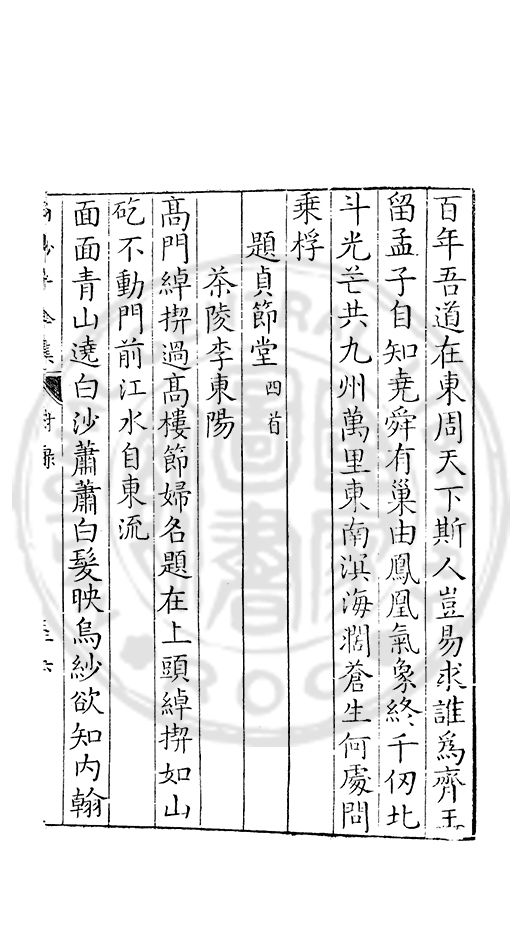 百年吾道在東周天下斯人豈易求誰爲齊王
留孟子自知堯舜有巢由鳳凰氣象終千仞北
斗光芒共九州萬里東南溟海濶蒼生何處問
乗桴
題貞節堂四首
茶陵李東陽
高門綽揳過高樓節婦名題在上頭綽揳如山
屹不動門前江水自東流
面面青山遶白沙蕭蕭白髪映烏紗欲知内翰